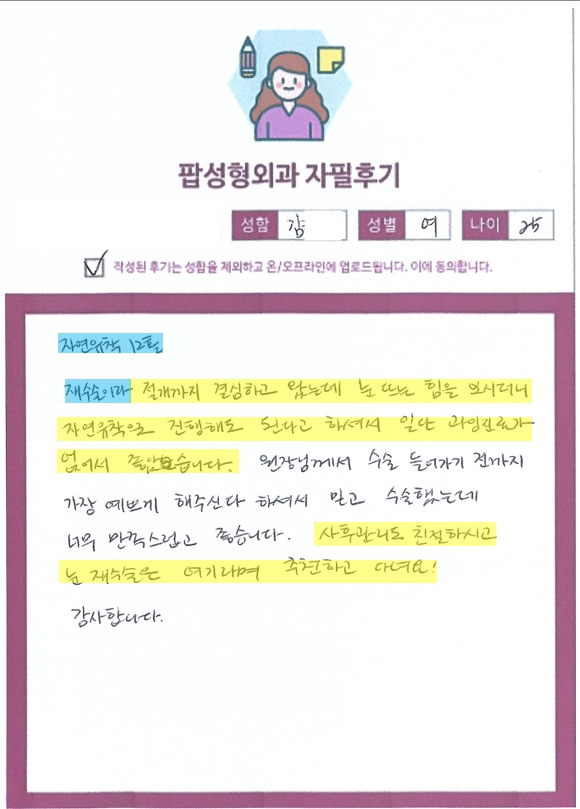 팝성형외과 자필후기
성함 김 성별 여 나이 25
작성된 후기는 성함을 제외하고 온/오프라인에 업로드됩니다. 이에 동의합니다.
자연유착 12쌍
재수술이라 절개까지 결심하고 왔는데 눈 뜨는 힘을 보시더니
자연유착으로 진행해도 된다고 하셔서 일단 과잉진료가
없어서 좋았습니다. 원장님께서 수술 들어가기 전까지
가장 예쁘게 해주신다 하셔서 믿고 수술했는데
너무 만족스럽고 좋습니다. 사후관리도 친절하시고
눈 재수술은 여기라며 추천하고 다녀요!
감사합니다.